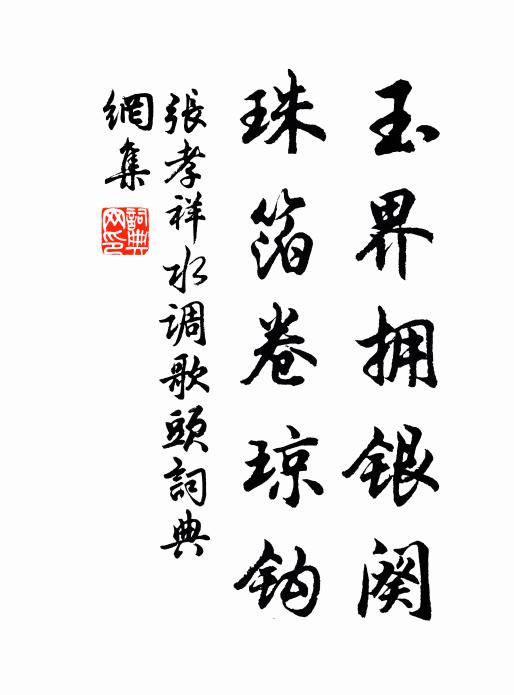 玉界拥银阙
珠箔卷琼钩
張孝祥水调歌頭詞典
網集
詞典网印